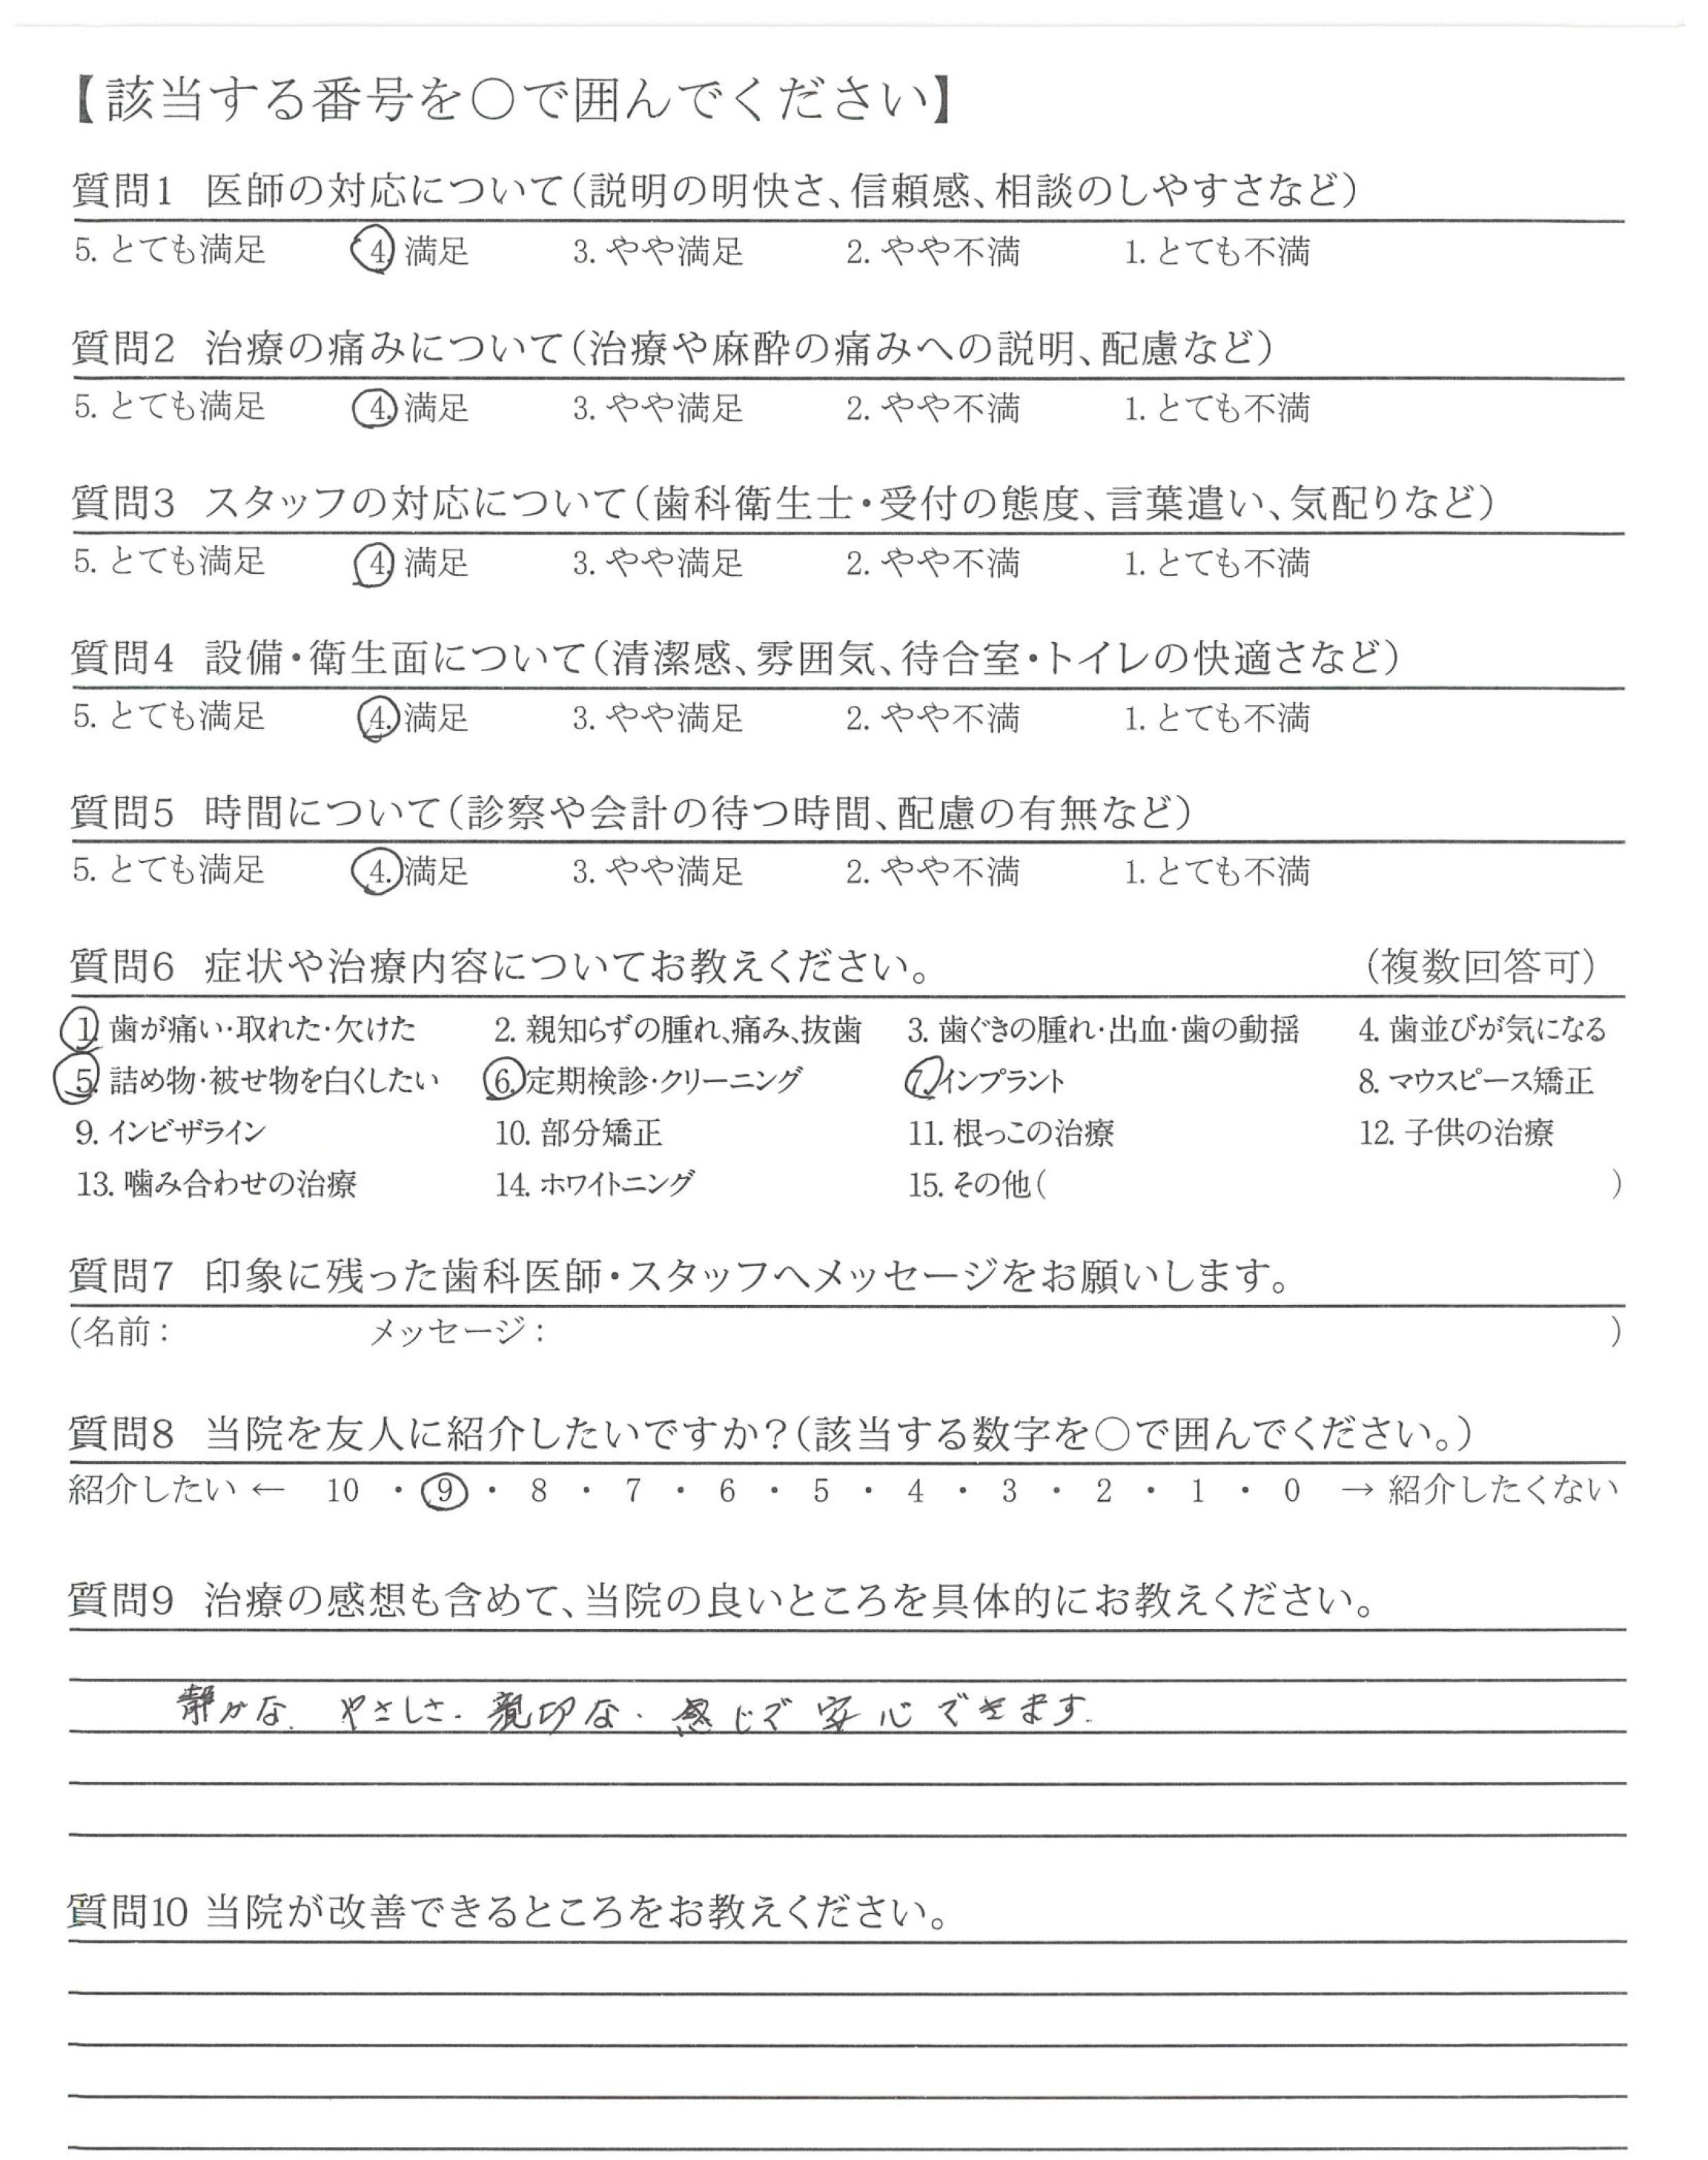 【該当する番号を〇で囲んでください】
質問1 医師の対応について(説明の明快さ、信頼感、相談のしやすさなど)
5. とても満足 4. 満足 3. やや満足 2. やや不満 1. とても不満
質問2 治療の痛みについて(治療や麻酔の痛みへの説明、配慮など)
5. とても満足 4. 満足 3. やや満足 2. やや不満 1. とても不満
質問3 スタッフの対応について(歯科衛生士・受付の態度、言葉遣い、気配りなど)
5. とても満足 4. 満足 3. やや満足 2. やや不満 1. とても不満
質問4 設備・衛生面について(清潔感、雰囲気、待合室・トイレの快適さなど)
5. とても満足 4. 満足 3. やや満足 2. やや不満 1. とても不満
質問5 時間について(診察や会計の待つ時間、配慮の有無など)
5. とても満足 4. 満足 3. やや満足 2. やや不満 1. とても不満
質問6 症状や治療内容についてお教えください。 (複数回答可)
1. 歯が痛い・取れた・欠けた 2. 親知らずの腫れ、痛み、抜歯 3. 歯ぐきの腫れ・出血・歯の動揺 4. 歯並びが気になる
5. 詰め物・被せ物を白くしたい 6. 定期検診・クリーニング 7. インプラント 8. マウスピース矯正
9. インビザライン 10. 部分矯正 11. 根っこの治療 12. 子供の治療
13. 噛み合わせの治療 14. ホワイトニング 15. その他( )
質問7 印象に残った歯科医師・スタッフへメッセージをお願いします。
(名前: メッセージ: )
質問8 当院を友人に紹介したいですか?(該当する数字を〇で囲んでください。)
紹介したい ← 10 ・ 9 ・ 8 ・ 7 ・ 6 ・ 5 ・ 4 ・ 3 ・ 2 ・ 1 ・ 0 → 紹介したくない
質問9 治療の感想も含めて、当院の良いところを具体的にお教えください。
静かな. やさしさ. 親切な. 感じで安心できます.
質問10 当院が改善できるところをお教えください。